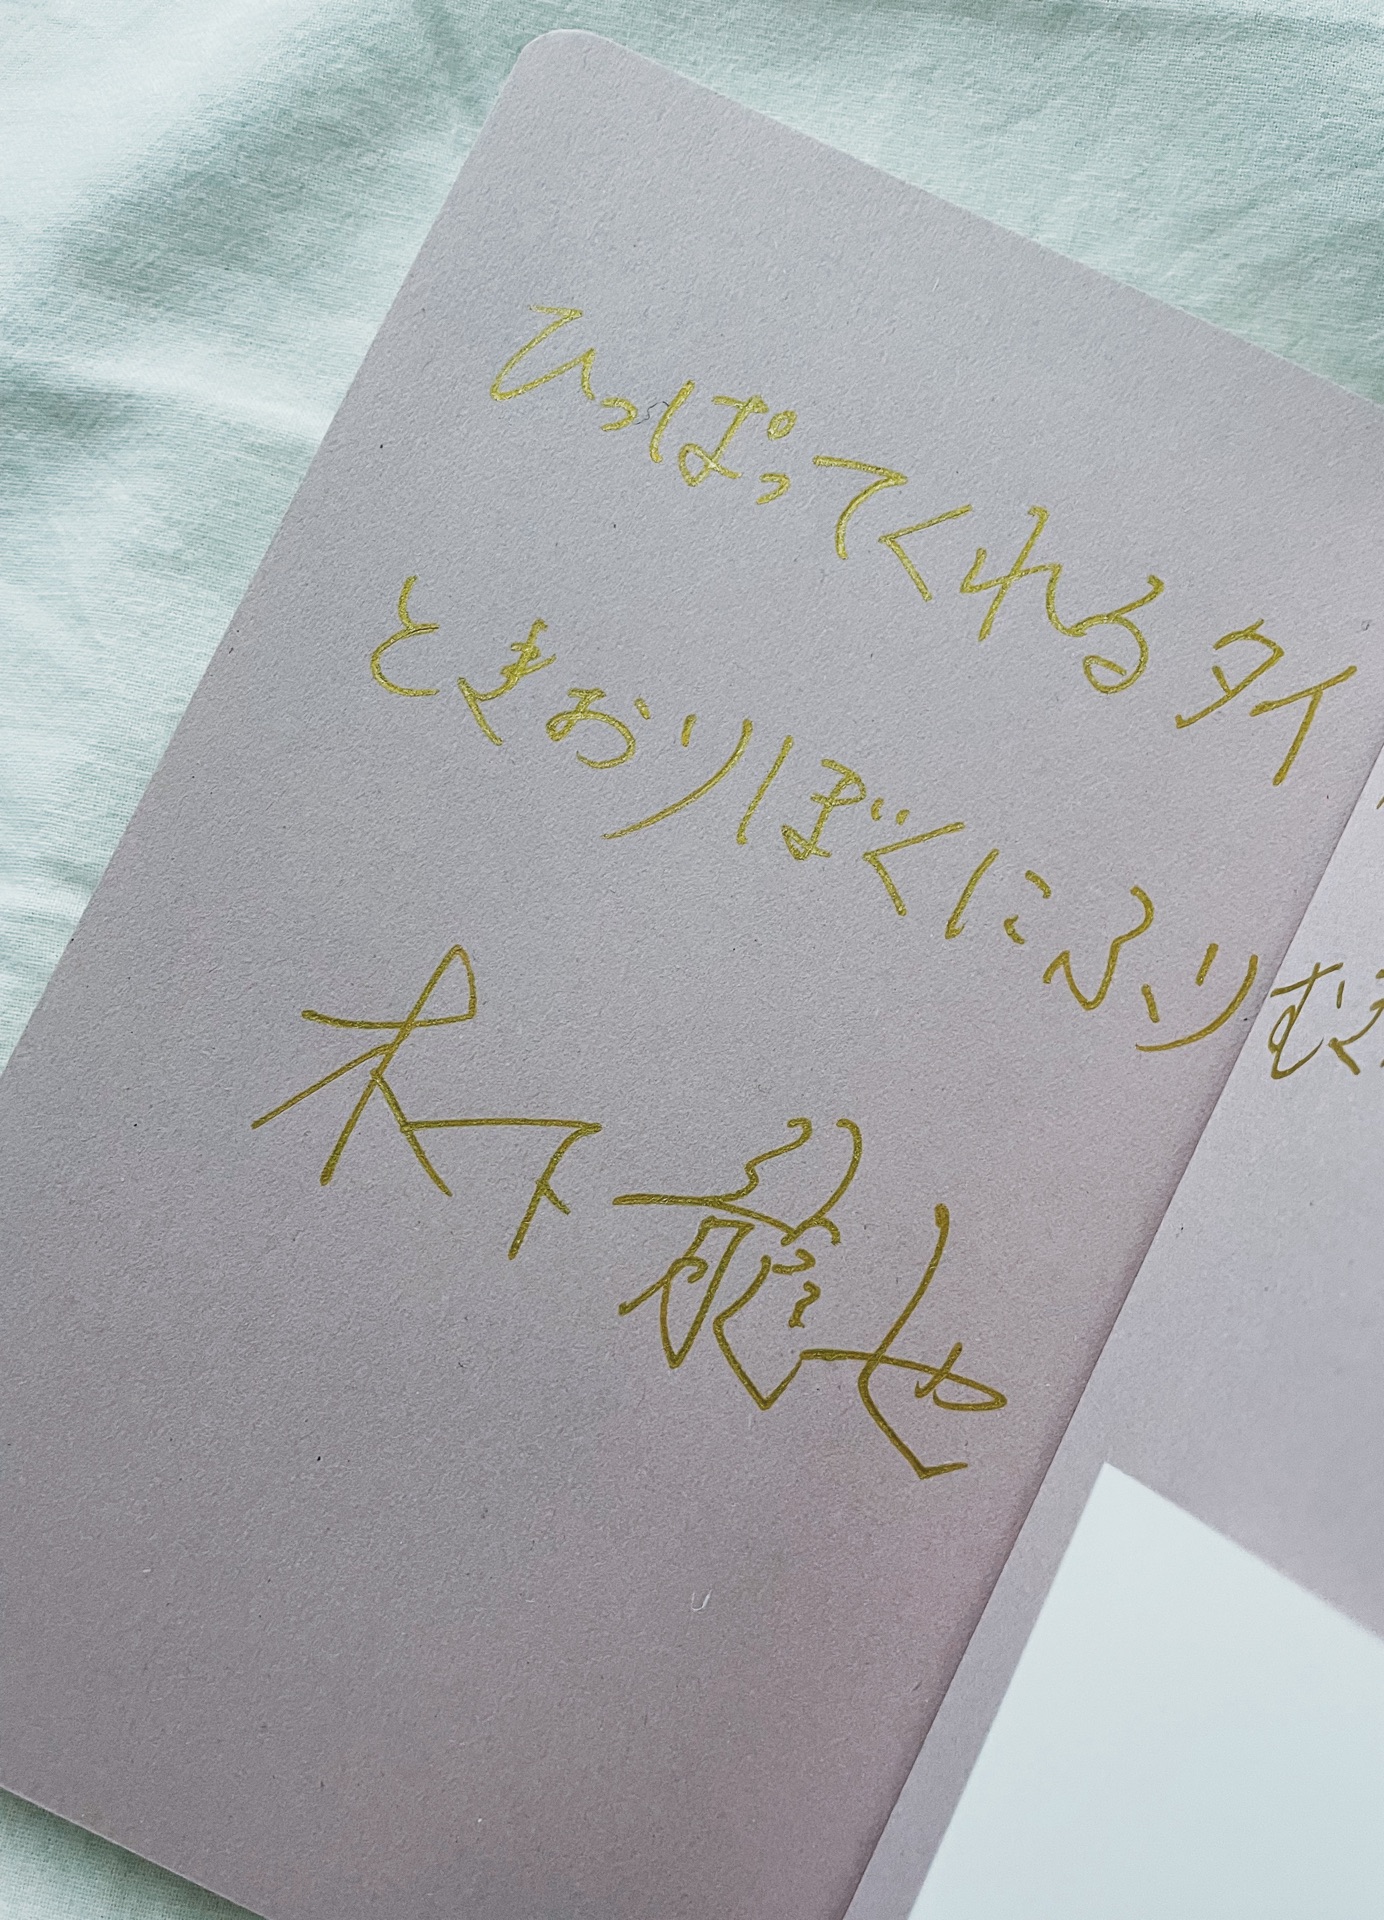 ひっぱってくれるタイ
ときおりぼくにふりむく
木下龍也